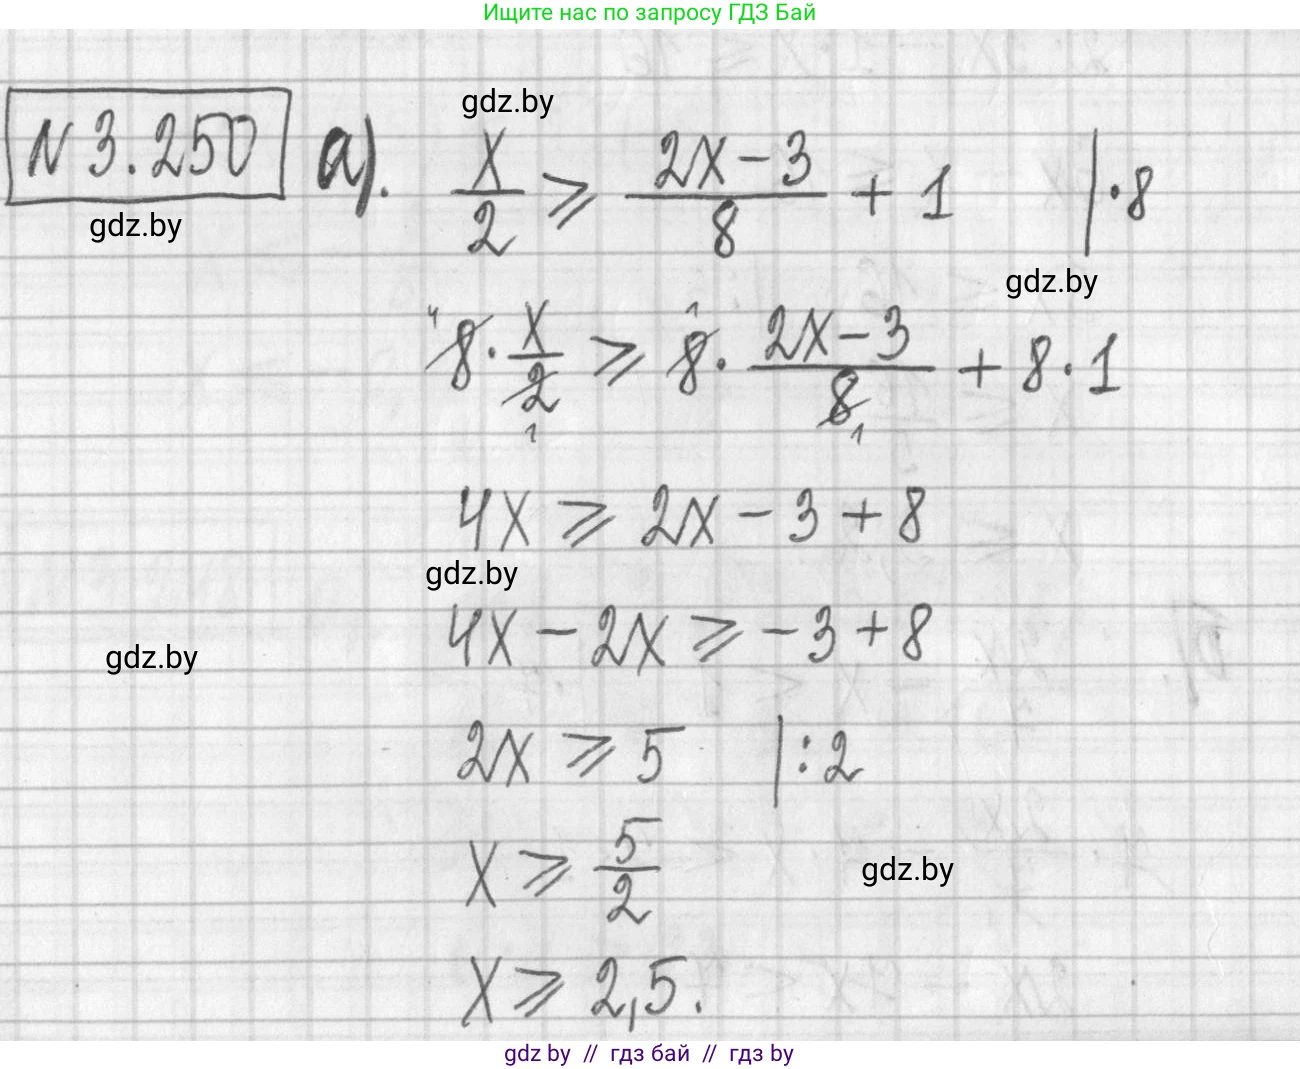 Ищите нас по запросу ГДЗ Бай
gdz.by
N 3.250 а). x/2 ⩾ (2x − 3)/8 + 1 | · 8
gdz.by
gdz.by
4 1
8 · x/2 ⩾ 8 · (2x − 3)/8 + 8 · 1
1 1
4x ⩾ 2x − 3 + 8
gdz.by
4x − 2x ⩾ − 3 + 8
gdz.by
2x ⩾ 5 | : 2
x ⩾ 5/2
gdz.by
x ⩾ 2,5.
gdz by // гдз бай // гдз by